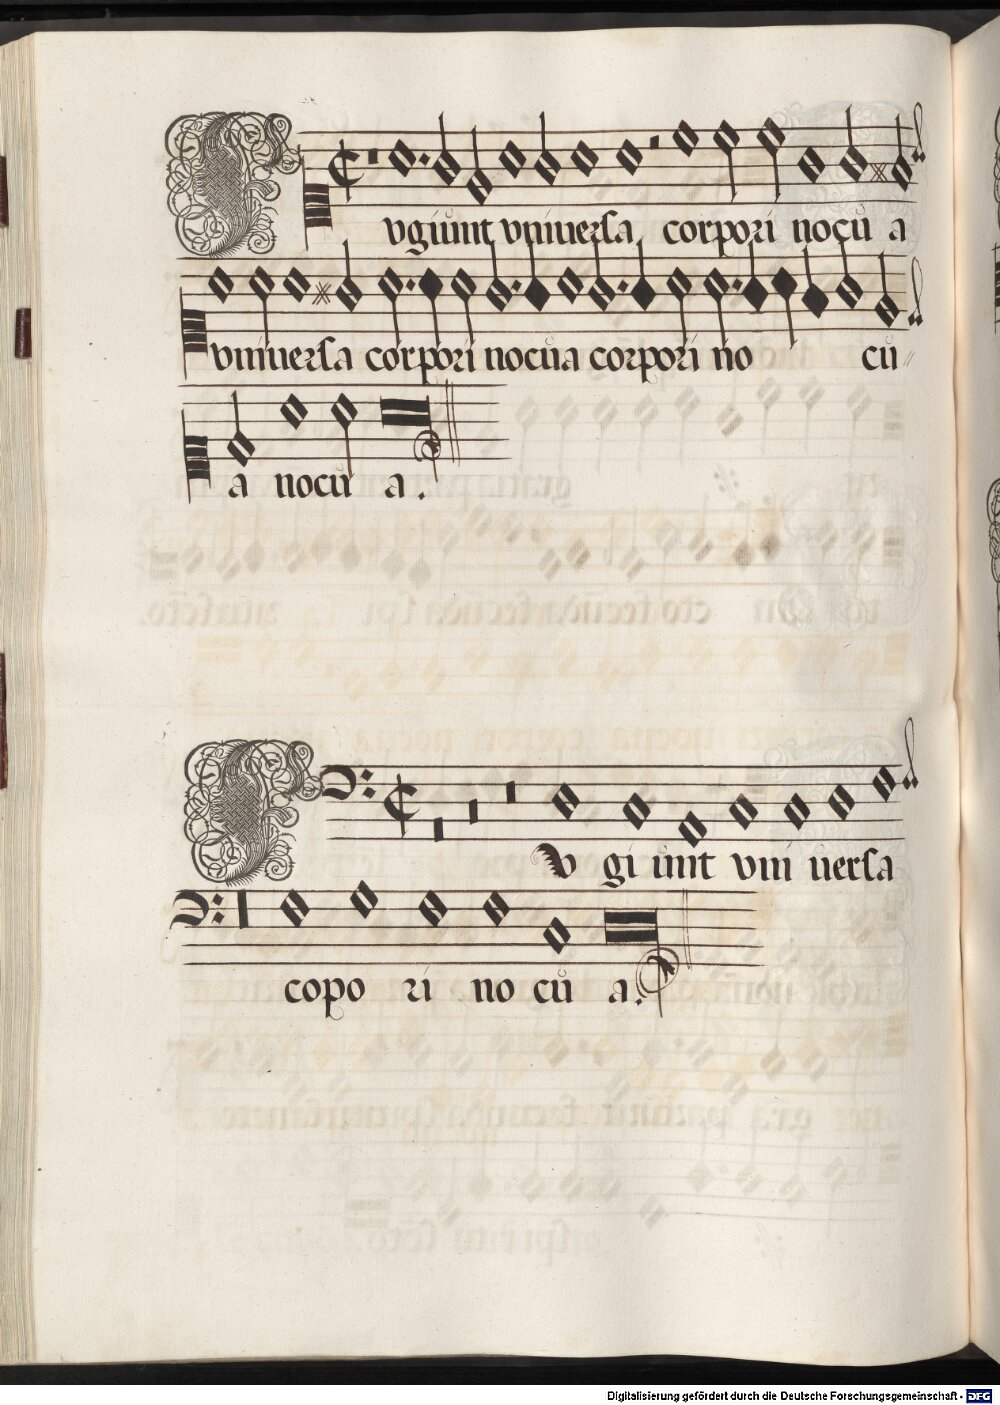 Fugiunt vniuersa corpori nocu a
vniuersa corpori nocua corpori no cu
a nocu a.
Fu gi unt vni uersa
copo ri no cu a.
Digitalisierung gefördert durch die Deutsche Forschungsgemeinschaft - DFG